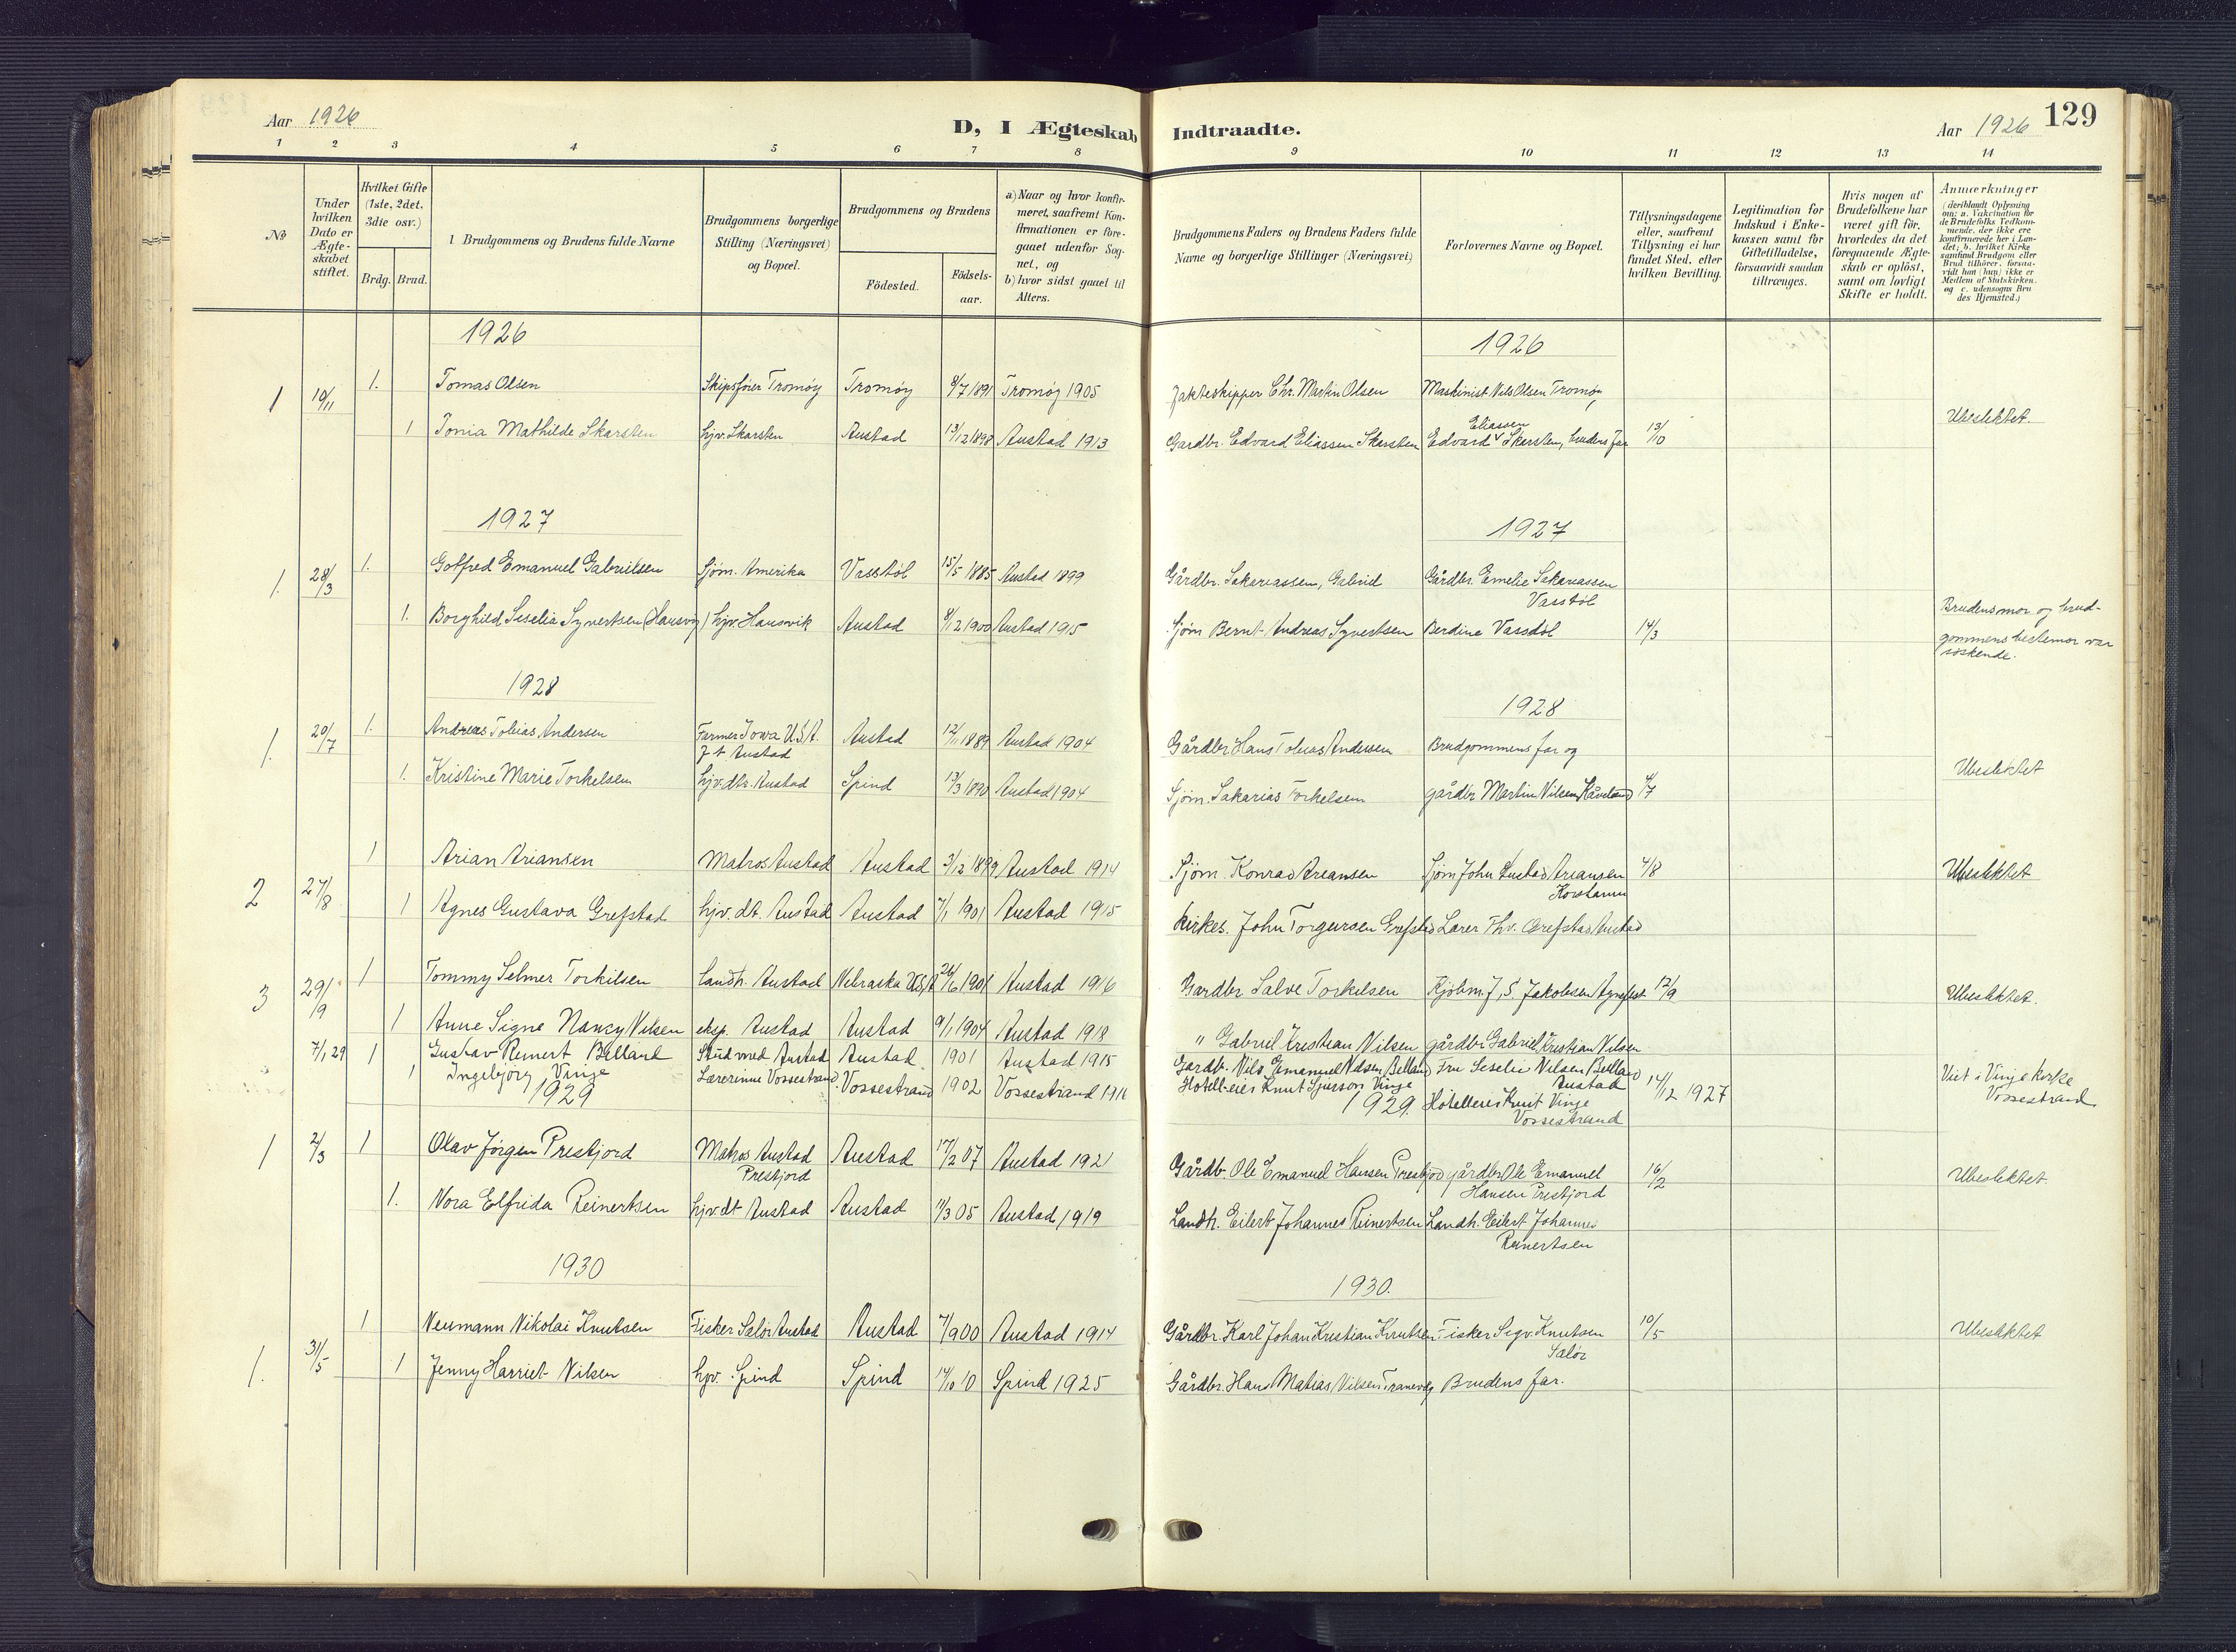 Aar 1926
D, I Ægteskab Indtraadte.
Aar 1926 129
1 2 3 4 5 6 7 8 9 10 11 12 13 14
No
Under hvilken Dato er Ægteskabet stiftet.
Hvilket Gifte (1ste, 2det, 3die osv.)
Brdg. Brud.
Brudgommens og Brudens fulde Navne
Brudgommens borgerlige Stilling (Næringsvei) og Bopæl.
Brudgommens og Brudens
Födested.
Födselsaar.
a) Naar og hvor konfirmeret, saafremt Konfirmationen er foregaaet udenfor Sognet, og
b) hvor sidst gaaet til Alters.
Brudgommens Faders og Brudens Faders fulde Navne og borgerlige Stillinger (Næringsvei)
Forlovernes Navne og Bopæl.
Tillysningsdagene eller, saafremt Tillysning ei har fundet Sted, efter hvilken Bevilling.
Legitimation for Indskud i Enkekassen samt for Giftetilludelse, forsaavidt saadan tiltrænges.
Hvis nogen af Brudefolkene har været gift før, hvorledes da det foregaaende Ægteskab er oplöst, samt om lovligt Skifte er holdt.
Anmærkninger (deriblandt Oplysning om: a. Vakcination for de Brudefolks Vedkommende, der ikke ere konfirmerede her i Landet; b. hvilket Kirkesamfund Brudgom eller Brud tilhörer, forsaavidt han (hun) ikke er Medlem af Statskirken, og c. udensogns Brudes Hjemsted.)
1926 1926
1 19/11 1. Tomas Olsen Skipsfører Tromøy Tromøy 8/7 1891 Tromøy 1905 Jakteskipper Chr. Martin Olsen Maskinist Nils Olsen Tromøy
1 Tonia Mathilde Skarsten hjv. Skarsten Austad 13/12 1898 Austad 1913 Gardbr. Edvard Eliassen Skarsten Edvard Eliassen Skarsten, brudens far 13/10 Ubeslektet.
1927 1927
1. 28/3 1. Gotfred Emanuel Gabrielsen Sjøm. Amerika Vasstøl 15/5 1885 Austad 1899 Gårdbr. Sakariassen, Gabriel Gårdbr. Emelie Sakariassen Vasstøl
1. Borghild Seselia Syvertsen (Hausvig) hjv. Hausvik Austad 8/12 1900 Austad 1915 Sjøm Bernt Andreas Syvertsen Berdine Vassdøl 14/3 Brudens mor og brudgommens bestemor var søskende.
1928 1928
1. 20/7 1. Andreas Tobias Andersen Farmer Iowa U.S.A. f t Austad Austad 12/11 1889 Austad 1904 Gårdbr Hans Tobias Andersen Brudgommens far og
1. Kristine Marie Torkelsen hjv. dtr. Austad Spind 13/3 1890 Austad 1904 Sjøm. Sakarias Torkelsen gårdbr Martin Nilsen Kåveland 4/7 Ubeslektet
2 27/8 1 Arian Ariansen Matros Austad Austad 3/12 1899 Austad 1914 Sjøm. Konrad Areansen Sjøm John Austad Areansen 4/8 Ubeslektet
1 Agnes Gustava Grefstad hjv. dt. Austad Austad 7/1 1901 Austad 1915 Kirkes. John Torgeirsen Grefstad Lærer Thv. Grefstad Austad
3 29/9 1 Tommy Selmer Torkilsen Landh. Austad Nebraska U.S.A 26/6 1901 Austad 1916 Gardbr Salve Torkelsen Kjøbm. J. S. Jakobsen Agnefest 12/9 Ubeslektet.
1 Anne Signe Nancy Nilsen eksp. Austad Austad 9/1 1904 Austad 1918 " Gabriel Kristian Nilsen gårdbr Gabriel Kristian Nilsen
7/1 29 1 Gustav Reinert Belland Stud med Austad Austad 1901 Austad 1915 Gardb. Nils Emanuel Nilsen Belland Fru Seselie Nilsen Belland Austad 14/12 1927 Viet i Vinje Kirke Vossestrand
1 Ingebjørg Vinje Lærerinne Vossestrand. Vossestrand 1902 Vossestrand 1916 Hotell-eier Knut Sjurson Vinje Hotelleier Knut Vinje Vossestrand
1929 1929.
1 2/3 1 Olav Jørgen Prestjord Matros Austad Prestjord Austad 17/2 07 Austad 1921 Gårdb. Ole Emanuel Hansen Prestjord gårdbr Ole Emanuel Hansen Prestjord 16/2 Ubeslektet.
1. Nora Elfrida Reinertsen hjv dt Austad Austad 11/3 05 Austad 1919 Landh. Eilert Johannes Reinertsen Landh. Eilert Johannes Reinertsen
1930 1930.
1. 31/5 1 Neumann Nikolai Knutsen Fisker Salør Austad Austad 7/9 00 Austad 1914 Gårdbr. Karl Johan Kristian Knutsen Fisker Sigv. Knutsen Salør 10/5 Ubeslektet
1 Jenny Harriet Nilsen hjv. Spind Spind 14/10 10 Spind 1925 Gårdbr. Hans Matias Nilsen Tranevåg Brudens far.